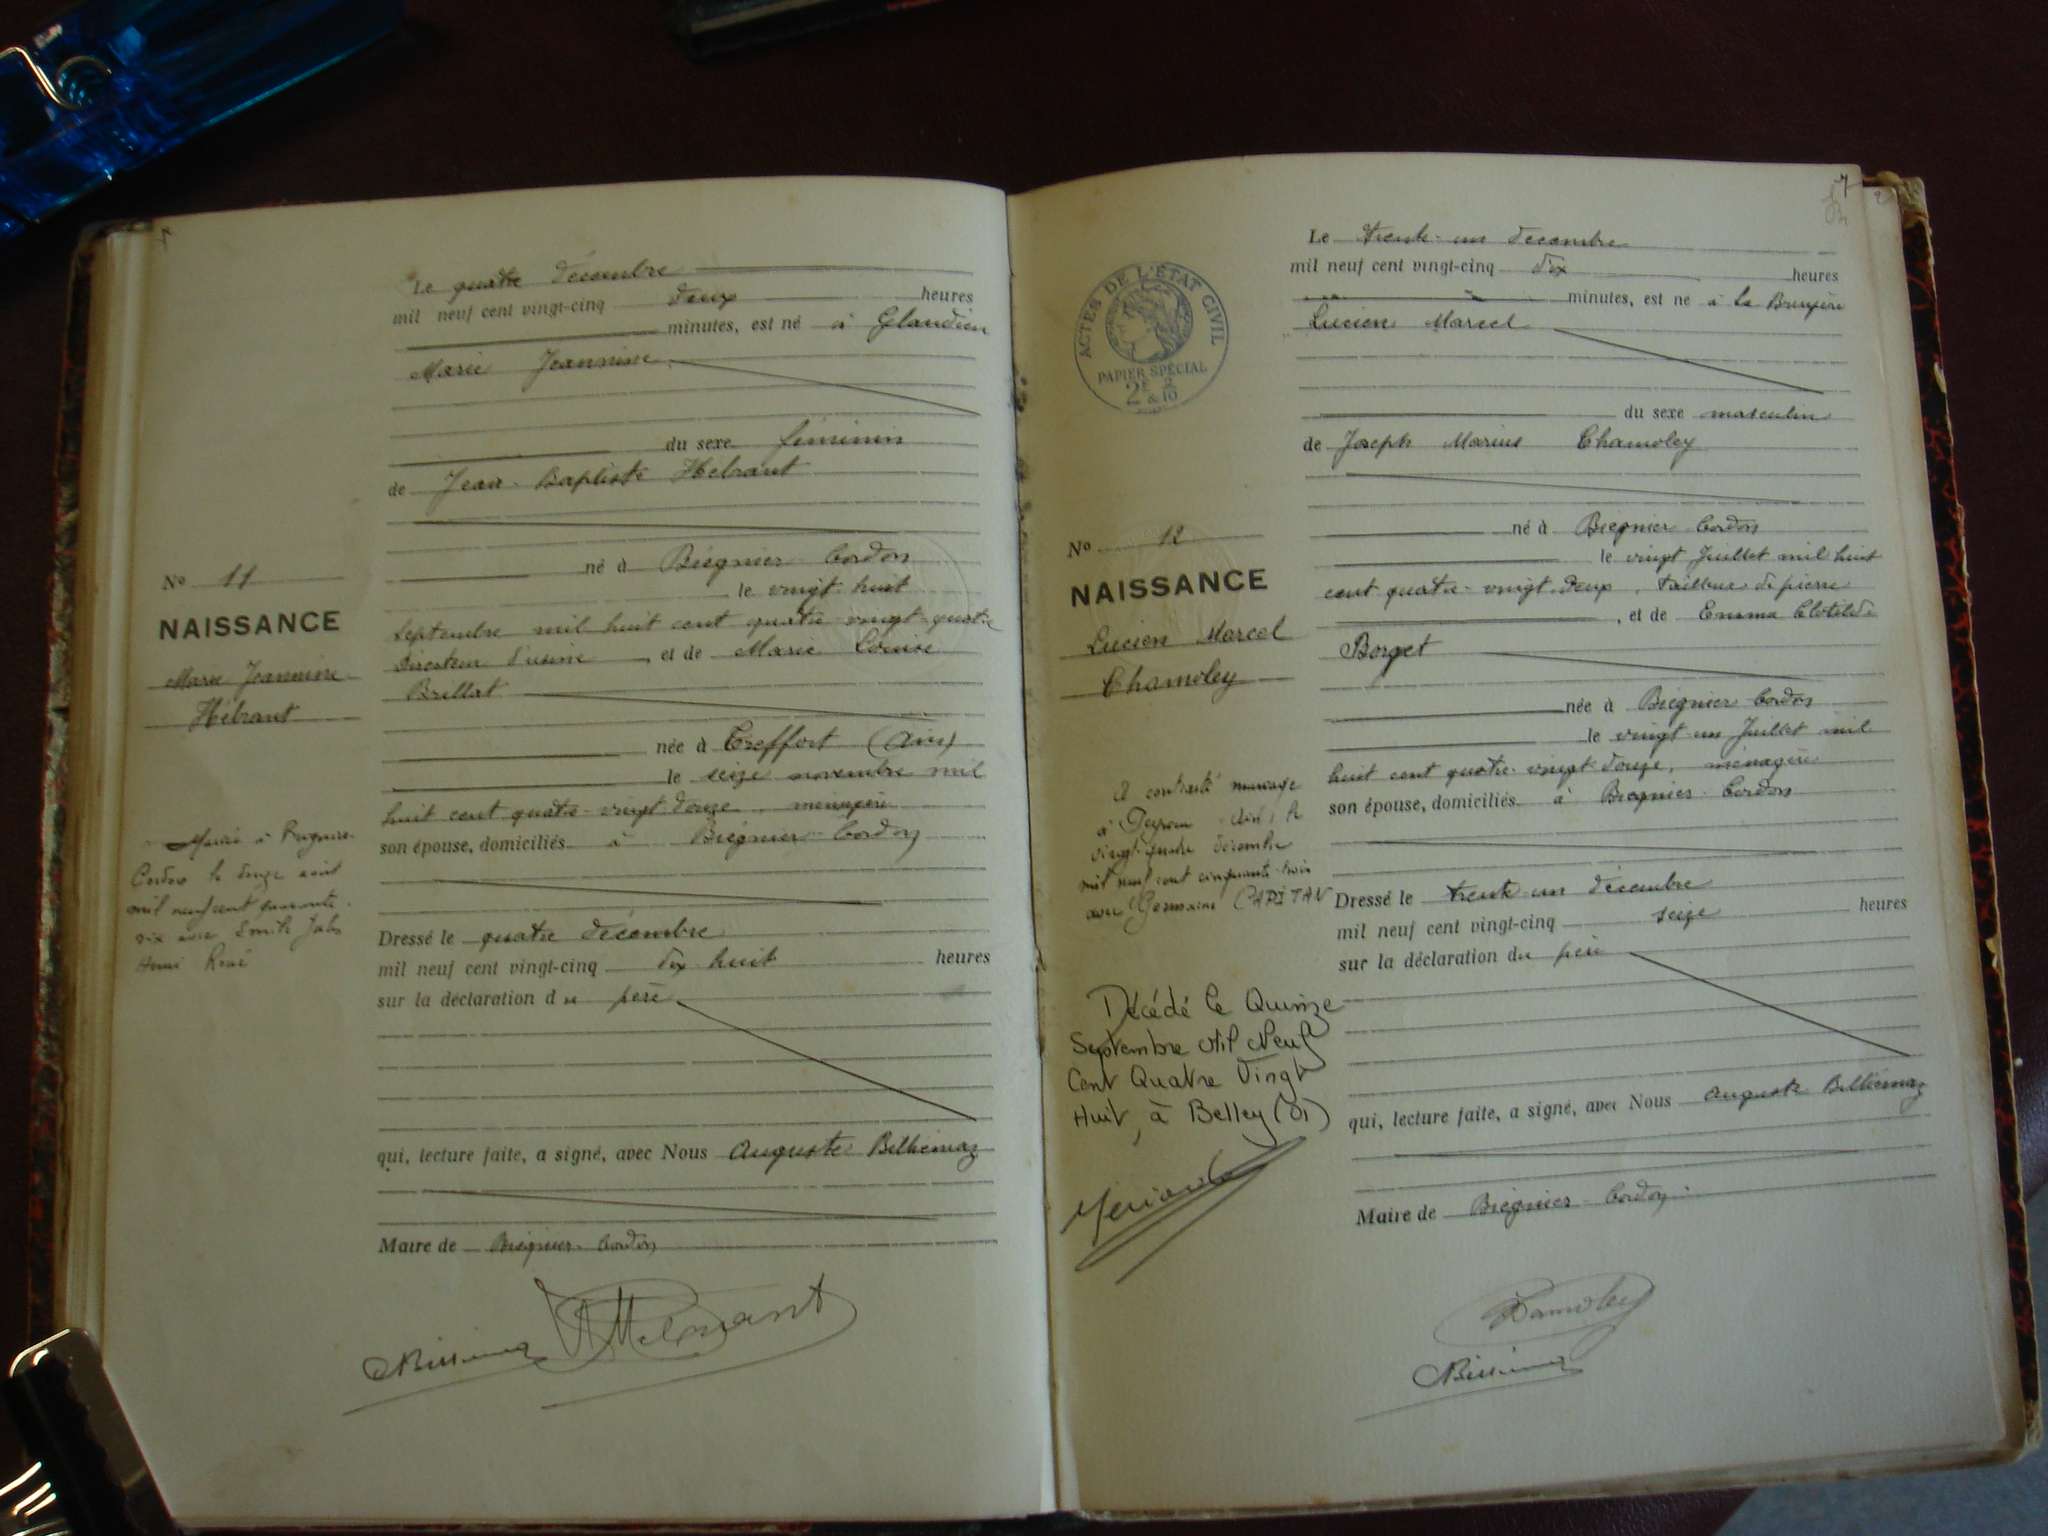 Le quatre décembre
mil neuf cent vingt-cinq deux heures
minutes, est né à Glandieu
Marie Jeannine
du sexe féminin
de Jean-Baptiste Hébrant
né à Brégnier Cordon
le vingt huit
septembre mil huit cent quatre-vingt-quatre
Directeur d'usine, et de Marie Louise
Brillat
née à Treffort (Ain)
le seize novembre mil
huit cent quatre-vingt douze, ménagère
son épouse, domiciliés à Brégnier-Cordon
Dressé le quatre décembre
mil neuf cent vingt-cinq dix huit heures
sur la déclaration du père
qui, lecture faite, a signé, avec Nous Auguste Billiemaz
Maire de Brégnier-Cordon
No 11
NAISSANCE
Marie Jeannine
Hébrant
Mariée à Brégnier-
Cordon le douze août
mil neuf cent quarante-
six avec Smith Jules
Henri René
7
Le trente-un décembre
mil neuf cent vingt-cinq dix heures
minutes, est né à La Bruyère
Lucien Marcel
du sexe masculin
de Joseph Marius Chamoley
né à Brégnier Cordon
le vingt Juillet mil huit
cent quatre-vingt deux, tailleur de pierre
, et de Emma Clotilde
Borget
née à Brégnier Cordon
le vingt-un Juillet mil
huit cent quatre-vingt douze, ménagère
son épouse, domiciliés à Brégnier-Cordon
Dressé le trente-un décembre
mil neuf cent vingt-cinq seize heures
sur la déclaration du père
qui, lecture faite, a signé, avec Nous Auguste Billiemaz
Maire de Brégnier-Cordon
Chamoley
ACTES DE L'ÉTAT CIVIL
PAPIER SPÉCIAL
2F & 2/10
No 12
NAISSANCE
Lucien Marcel
Chamoley
A contracté mariage
à Peyrieu (Ain) le
vingt-quatre décembre
mil neuf cent cinquante-trois
avec Germaine CAPITAN
Décédé le Quinze
Septembre Mil Neuf
Cent Quatre Vingt
Huit, à Belley (01)